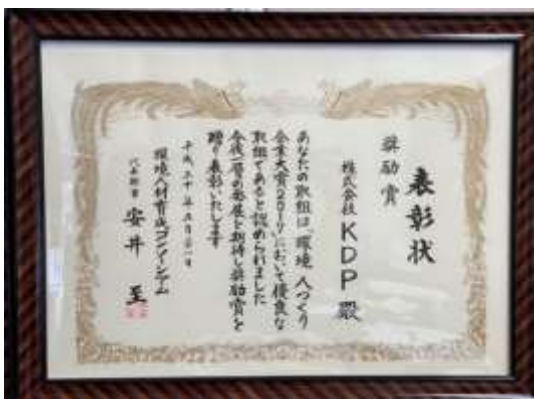 表彰状
奨励賞
株式会社 KDP 殿
あなたの取組は「環境 人づくり
企業大賞2017」において優良な
取組であると認められました
今後一層の発展を期待し奨励賞を
贈り表彰いたします
平成三十年五月
環境人材育成コンソーシアム
代表幹事 安井 至